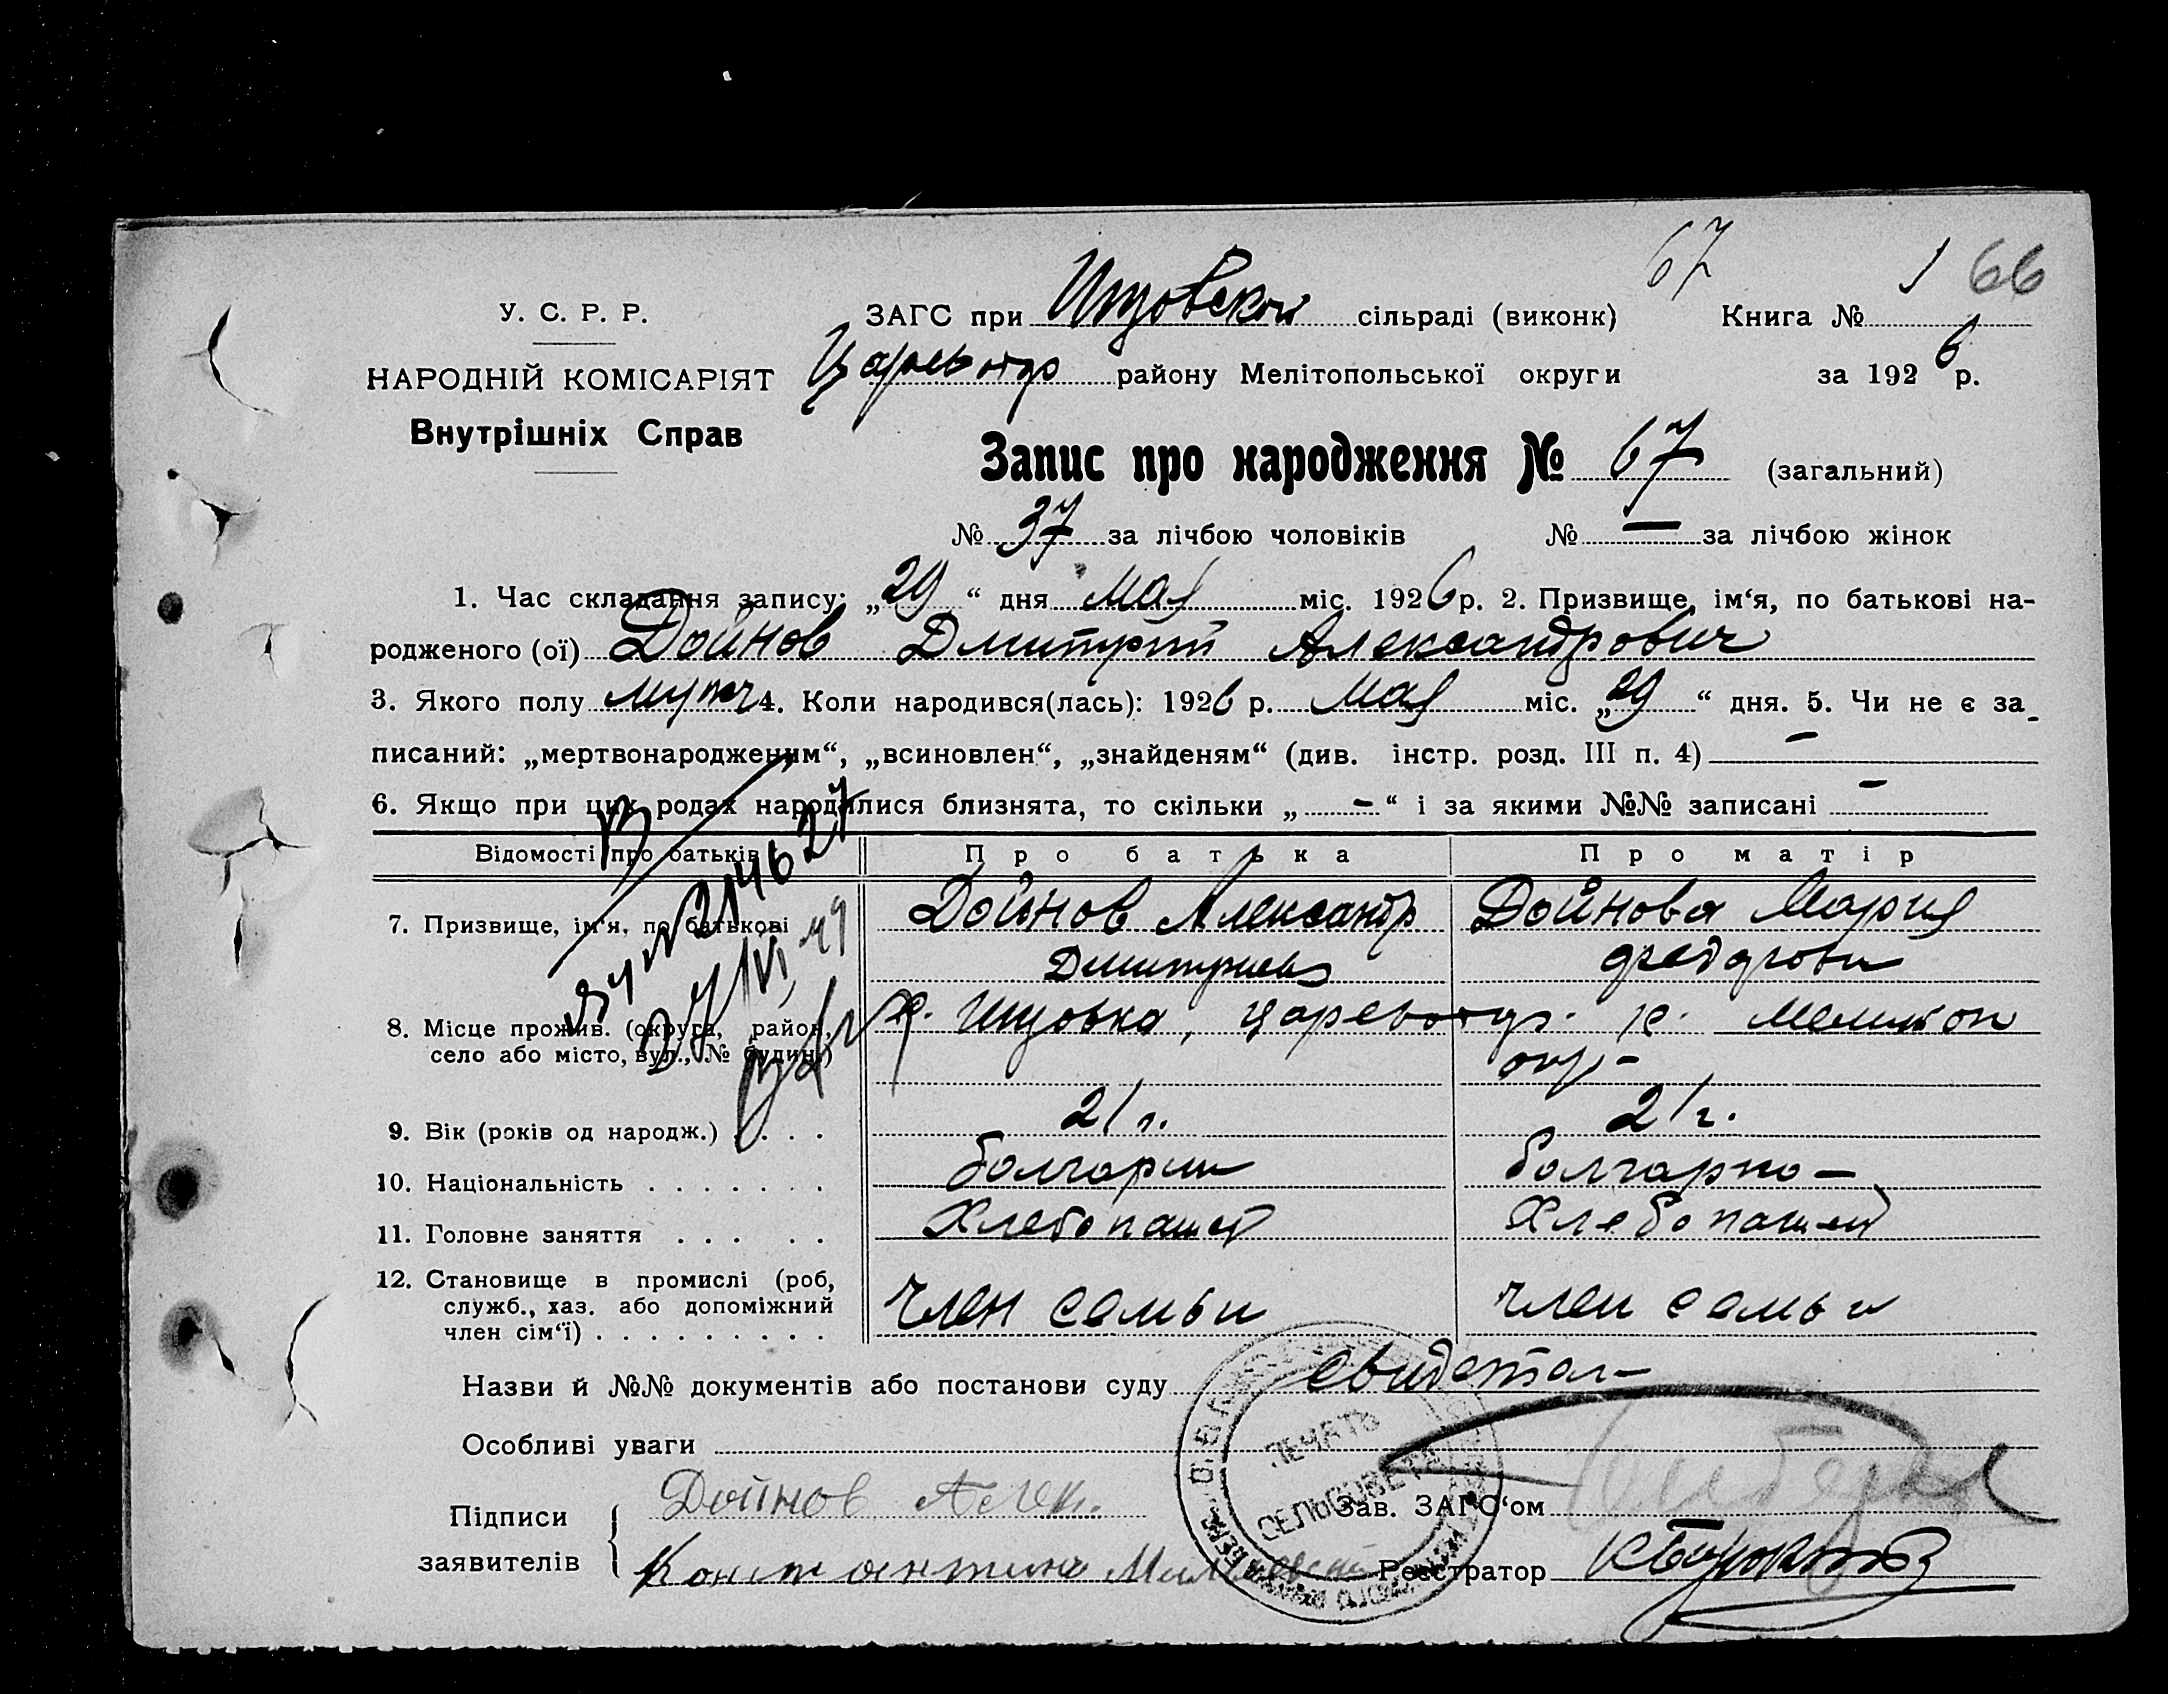 67
1 66
У. С. Р. Р.
НАРОДНІЙ КОМІСАРІЯТ
Внутрішніх Справ
ЗАГС при сільраді (виконк) Книга №
району Мелітопольської округи за 1926 р.
Запис про народження № 67 (загальний)
№ 37 за лічбою чоловіків № — за лічбою жінок
1. Час складання запису: „29“ дня мая міс. 1926 р. 2. Призвище, ім‘я, по батькові на-
родженого (ої) Дойнов Дмитрий Александрович
3. Якого полу муж 4. Коли народився(лась): 1926 р. Мая міс. „29“ дня. 5. Чи не є за-
писаний: „мертвонародженим“, „всиновлен“, „знайденям“ (див. інстр. розд. III п. 4) —
6. Якщо при цих родах народилися близнята, то скільки „ — “ і за якими №№ записані —
Відомості про батьків Про батька Про матір
7. Призвище, ім‘я, по батькові Дойнов Александр Дойнова Мария
8. Місце прожив. (округа, район,
село або місто, вул., № будин.)
окр-
9. Вік (років од народж.) . . . . 21 г. 21 г.
10. Національність . . . . . . . болгарин болгарка
11. Головне заняття . . . . . Хлебопашец Хлебопашец
12. Становище в промислі (роб,
служб., хаз. або допоміжний
член сім‘ї) . . . . . . . . . член семьи член семьи
Назви й №№ документів або постанови суду свидетел-
Особливі уваги
ПЕЧАТЬ
СЕЛЬСОВЕТА
Підписи
заявителів
Дойнов Алек.
Константин
Зав. ЗАГС‘ом
Реєстратор